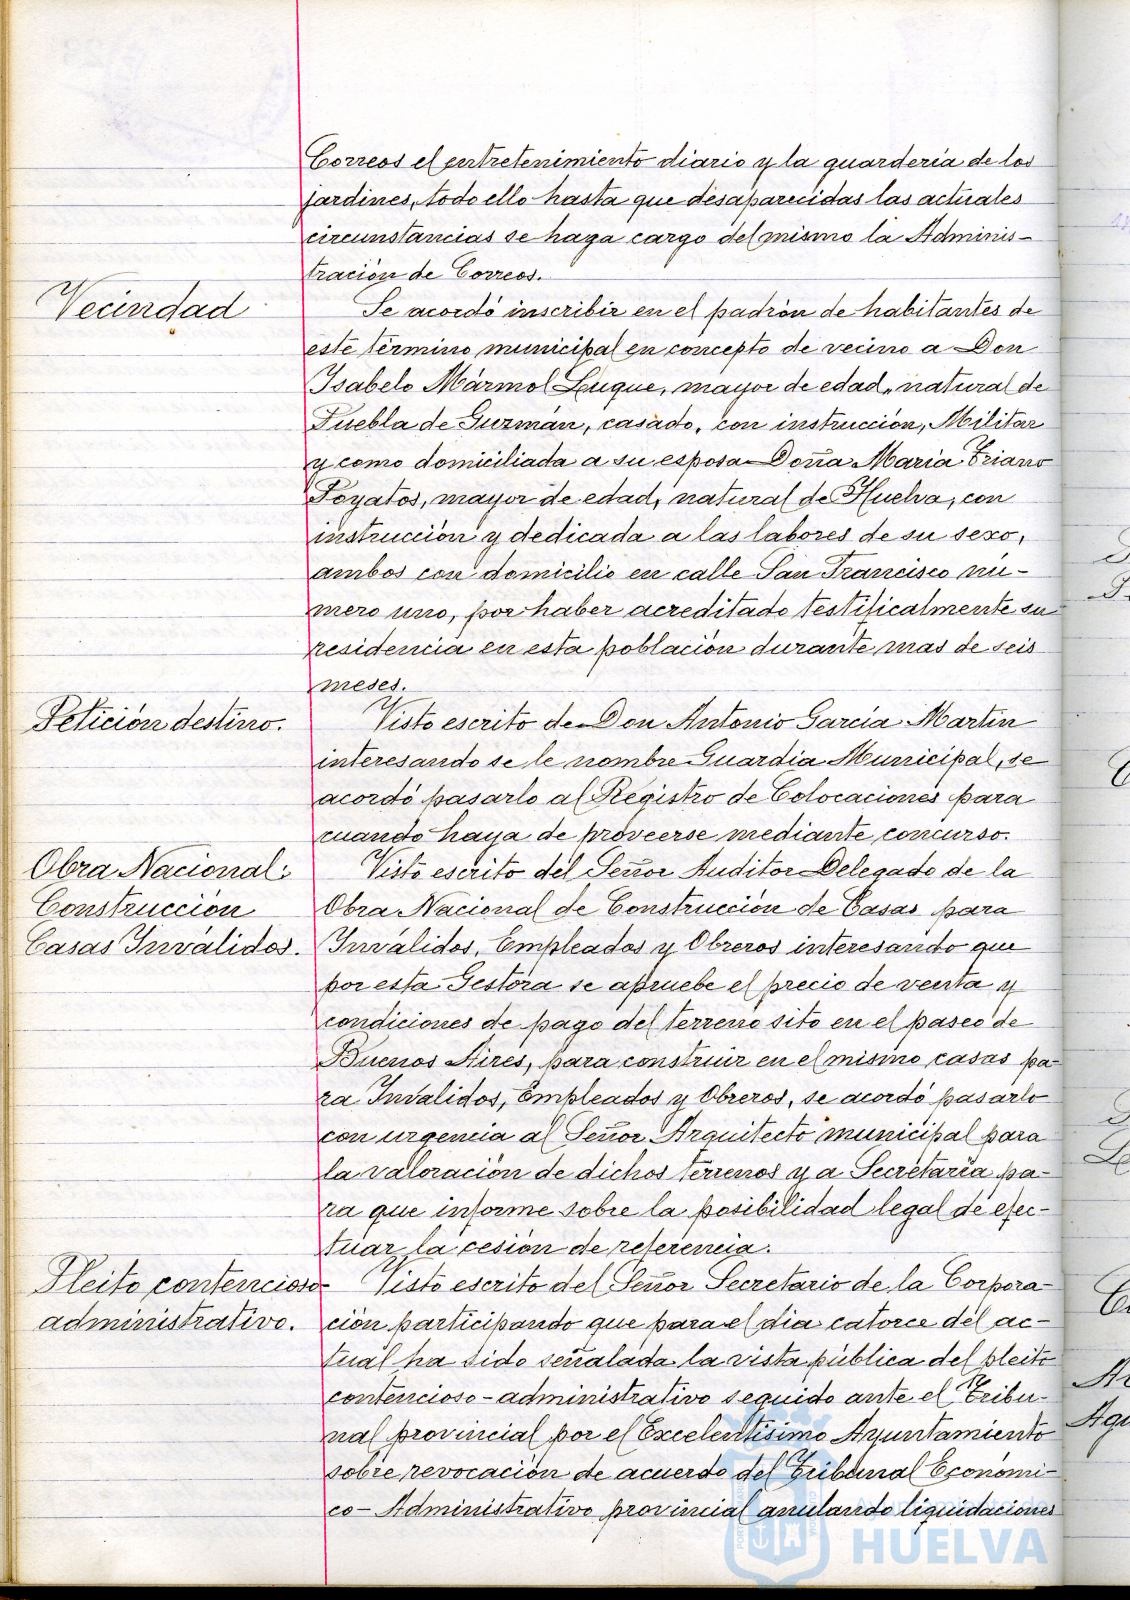 Correos el entretenimiento diario y la guardería de los
jardines, todo ello hasta que desaparecidas las actuales
circunstancias se haga cargo del mismo la Adminis-
tración de Correos.
Vecindad
Se acordó inscribir en el padrón de habitantes de
este término municipal en concepto de vecino a Don
Isabelo Mármol Luque, mayor de edad, natural de
Puebla de Guzmán, casado, con instrucción, Militar
y como domiciliada a su esposa Doña María Triano
Poyatos, mayor de edad, natural de Huelva, con
instrucción y dedicada a las labores de su sexo,
ambos con domicilio en calle San Francisco nú-
mero uno, por haber acreditado testificalmente su
residencia en esta población durante mas de seis
meses.
Petición destino.
Visto escrito de Don Antonio García Martín
interesando se le nombre Guardia Municipal, se
acordó pasarlo al Registro de Colocaciones para
cuando haya de proveerse mediante concurso.
Obra Nacional:
Construcción
Casas Inválidos.
Visto escrito del Señor Auditor Delegado de la
Obra Nacional de Construcción de Casas para
Inválidos, Empleados y Obreros interesando que
por esta Gestora se apruebe el precio de venta y
condiciones de pago del terreno sito en el paseo de
Buenos Aires, para construir en el mismo casas pa-
ra Invalidos, Empleados y Obreros, se acordó pasarlo
con urgencia al Señor Arquitecto municipal para
la valoración de dichos terrenos y a Secretaría pa-
ra que informe sobre la posibilidad legal de efec-
tuar la cesión de referencia.
Pleito contencioso-
administrativo.
Visto escrito del Señor Secretario de la Corpora-
ción participando que para el dia catorce del ac-
tual ha sido señalada la vista pública del pleito
contencioso-administrativo seguido ante el Tribu-
nal provincial por el Excelentísimo Ayuntamiento
sobre revocación de acuerdo del Tribunal Económi-
co-Administrativo provincial anulando liquidaciones
HUELVA